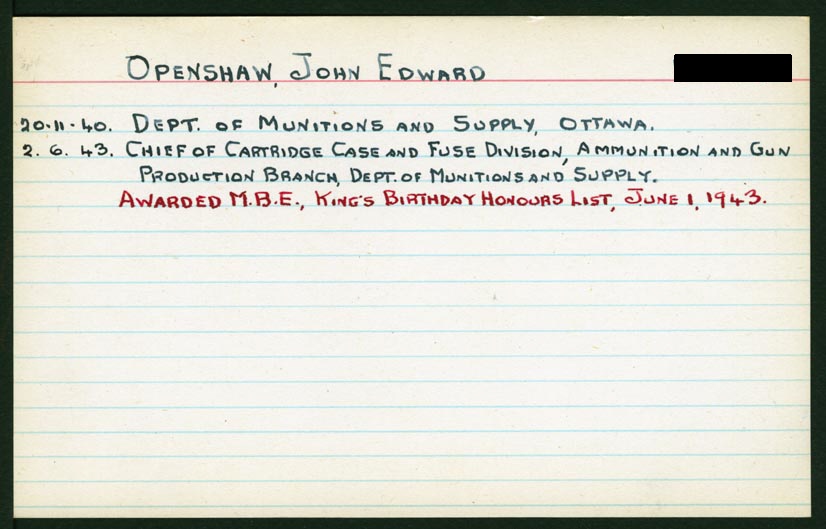 OPENSHAW, JOHN EDWARD
20·11·40. DEPT. OF MUNITIONS AND SUPPLY, OTTAWA.
2. 6. 43. CHIEF OF CARTRIDGE CASE AND FUSE DIVISION, AMMUNITION AND GUN
PRODUCTION BRANCH, DEPT. OF MUNITIONS AND SUPPLY.
AWARDED M.B.E., KING'S BIRTHDAY HONOURS LIST, JUNE 1, 1943.